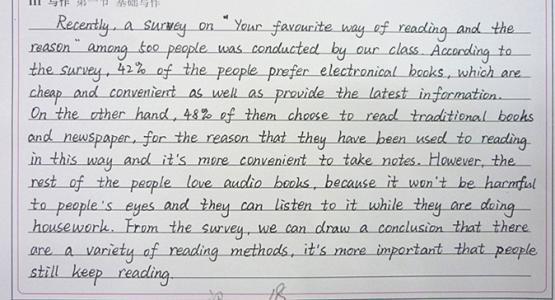 III 写作 第一节 基础写作
Recently, a survey on "Your favourite way of reading and the
reason" among too people was conducted by our class. According to
the survey, 42% of the people prefer electronical books, which are
cheap and convenient as well as provide the latest information.
On the other hand, 48% of them choose to read traditional books
and newspaper, for the reason that they have been used to reading
in this way and it's more convenient to take notes. However, the
rest of the people love audio books, because it won't be harmful
to people's eyes and they can listen to it while they are doing
housework. From the survey, we can draw a conclusion that there
are a variety of reading methods, it's more important that people
still keep reading.
18